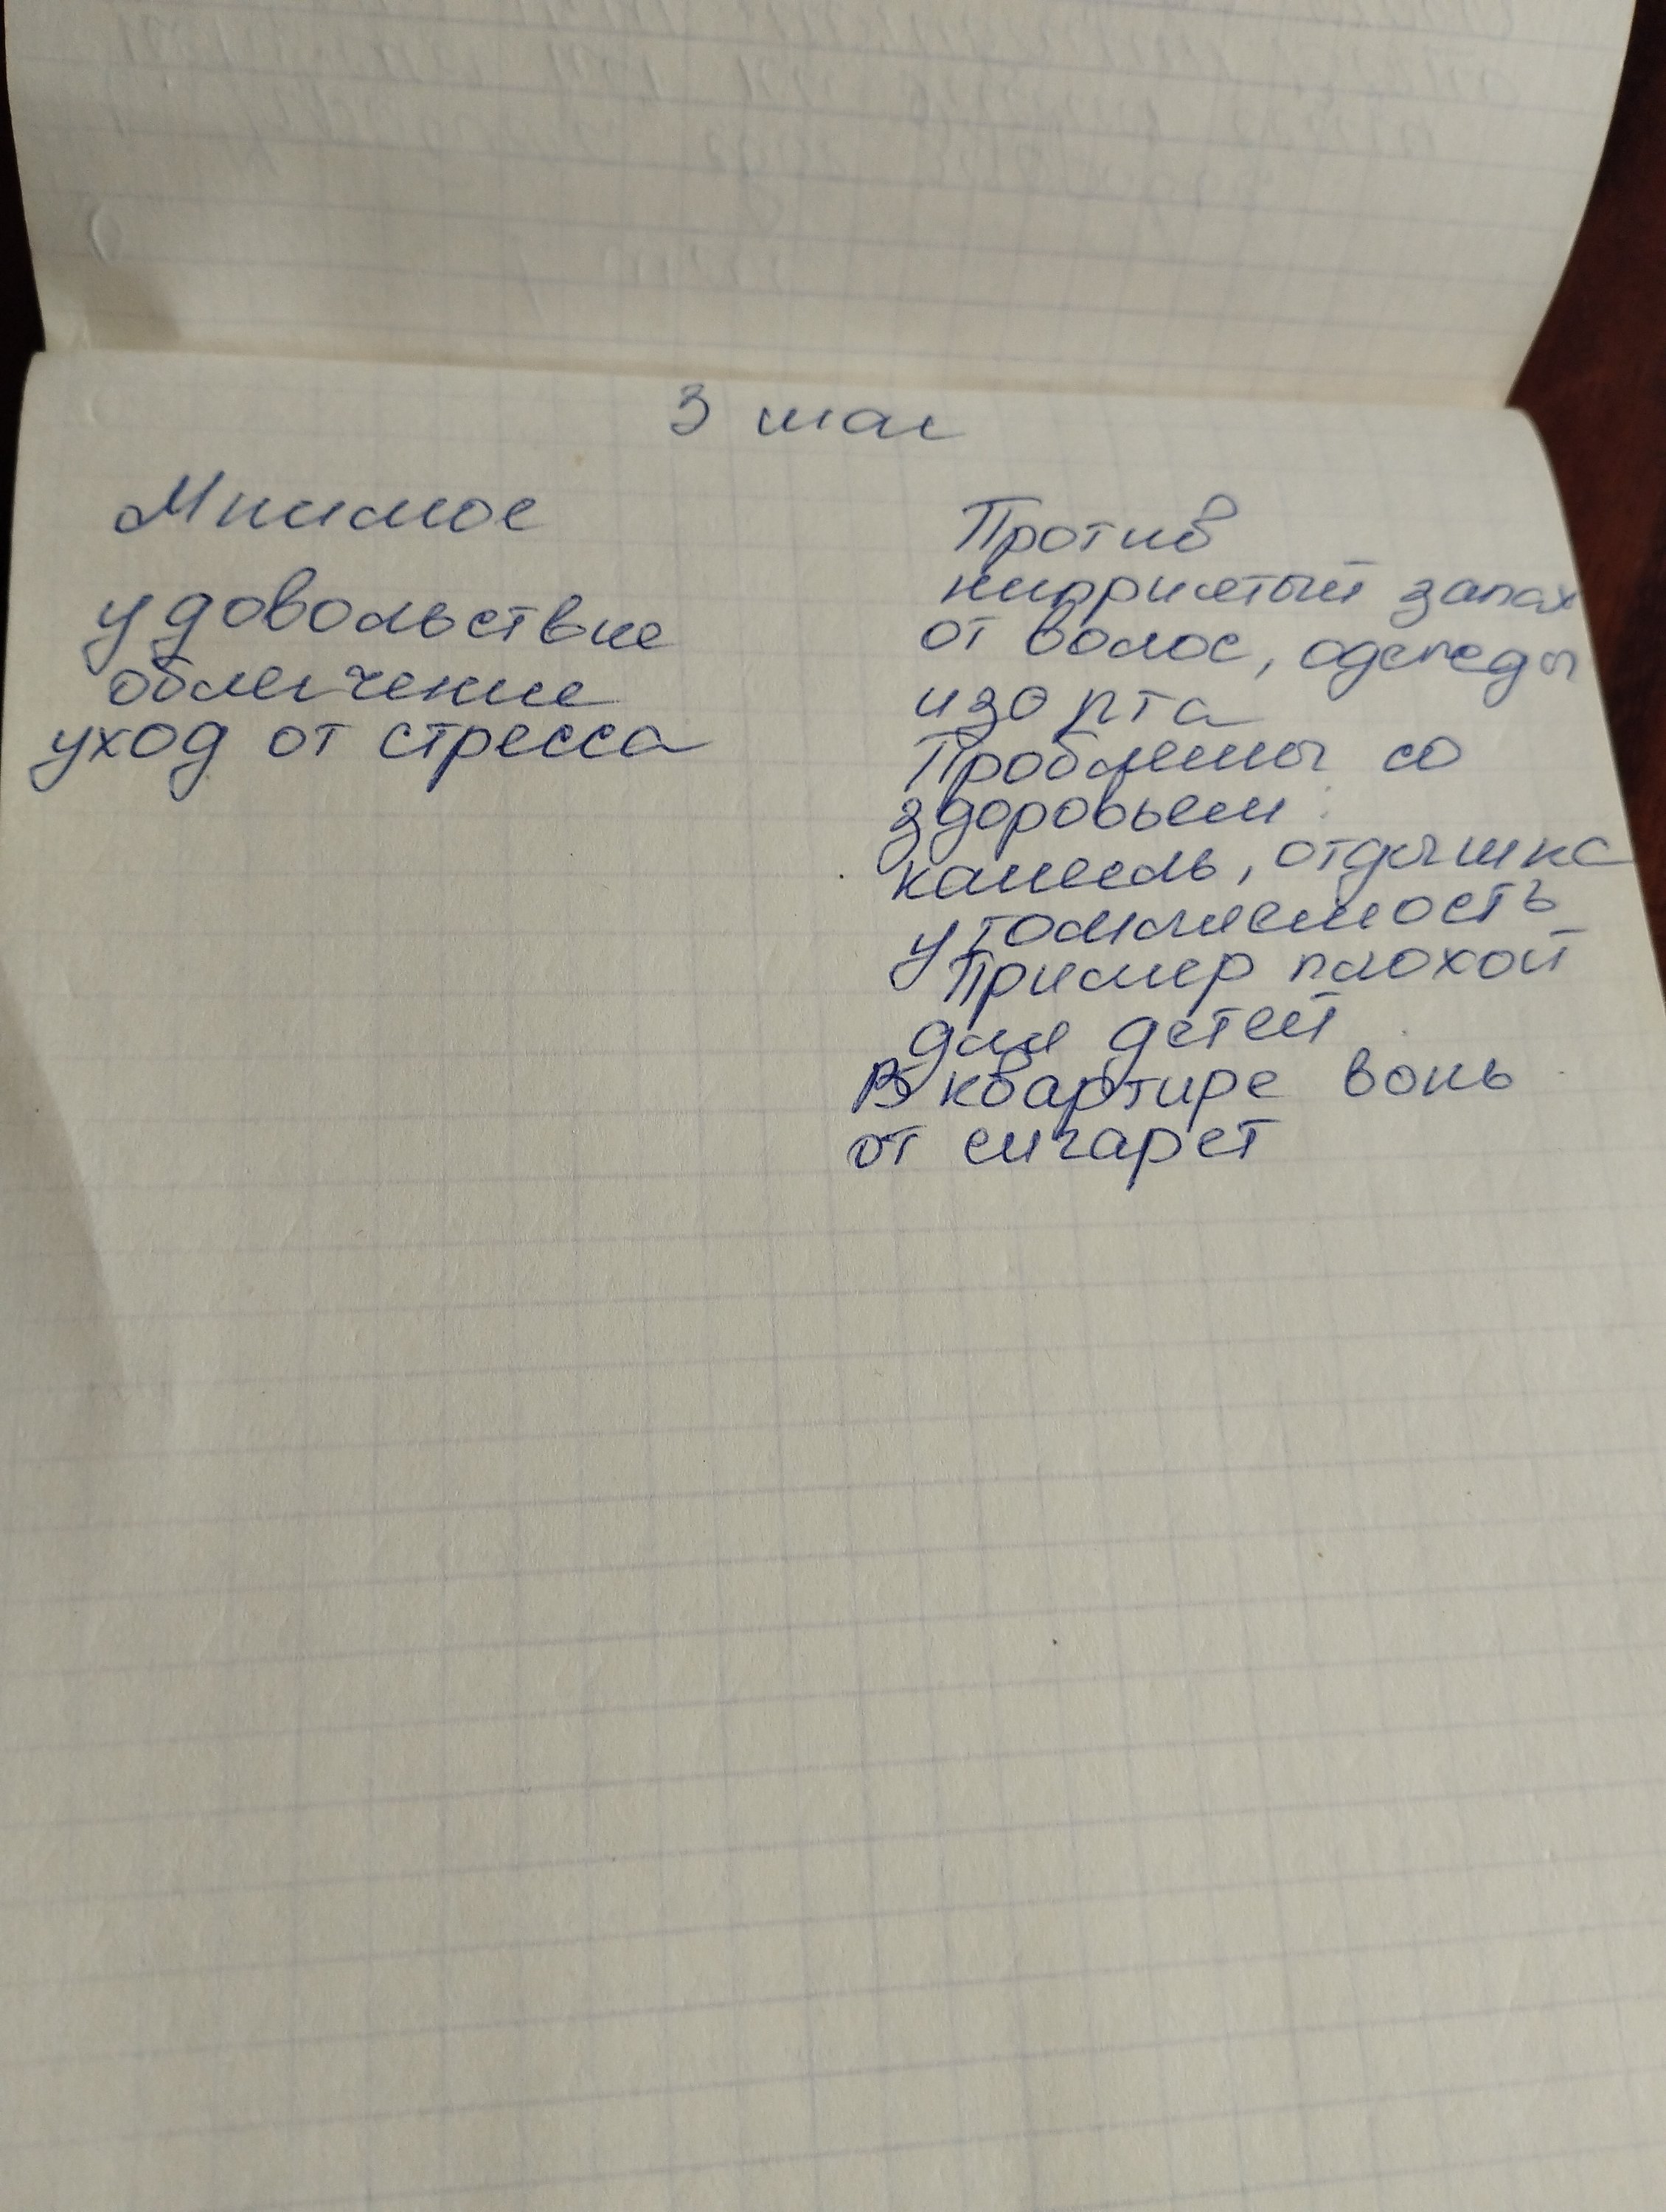 3 шаг
Мнимое
удовольствие
облегчение
уход от стресса
Против
неприятый запах
от волос, одежды
изо рта
Проблемы со
здоровьем:
кашель, отдышка
утомляемость
Пример плохой
для детей
В квартире вонь
от сигарет